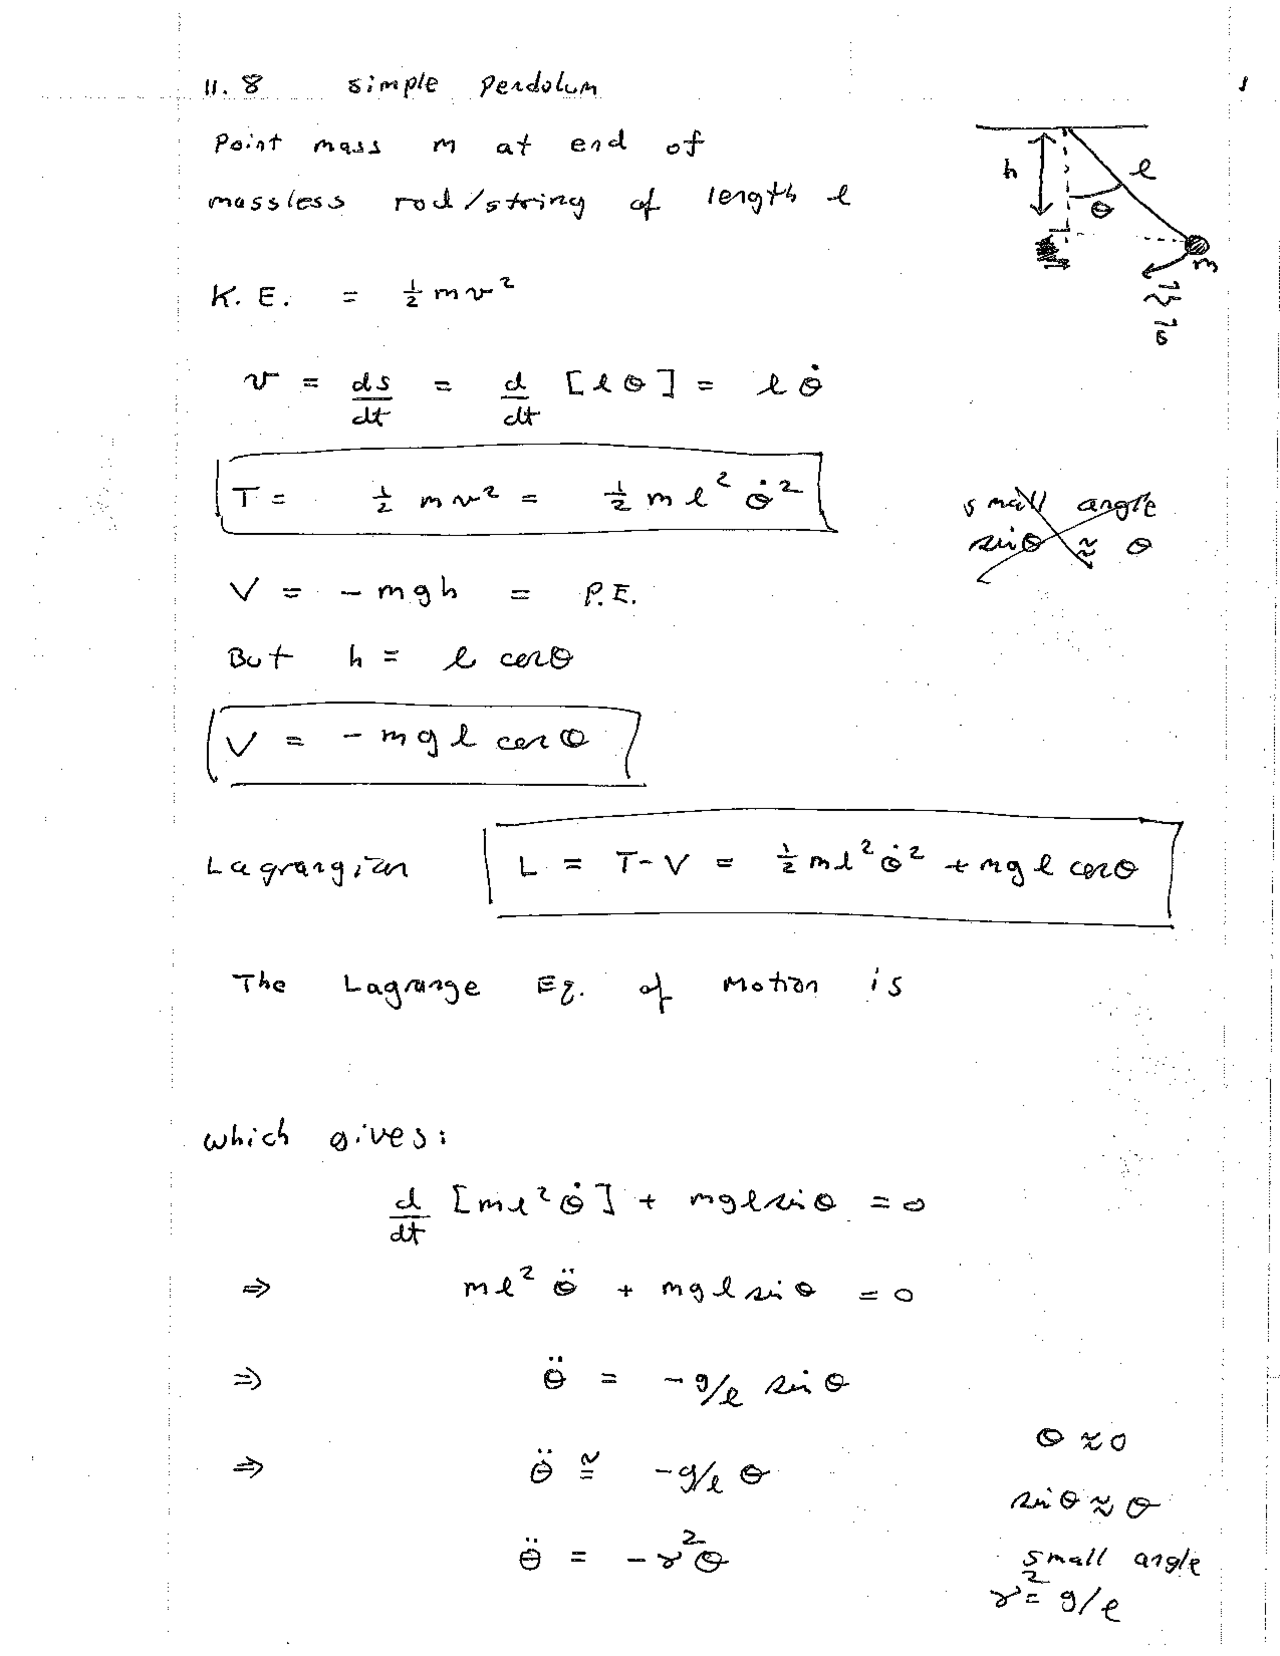 11.8 simple Pendolum
Point mass m at end of
massless rod/string of length l
h l θ
m
K.E. = ½ m v²
v = ds/dt = d/dt [l θ] = l θ̇
T = ½ m v² = ½ m l² θ̇²
small angle
sin θ ≈ θ
V = - mgh = P.E.
But h = l cos θ
V = - m g l cos θ
Lagrangian L = T - V = ½ m l² θ̇² + m g l cos θ
The Lagrange Eq. of Motion is
which gives:
d/dt [m l² θ̇] + m g l sin θ = 0
⇒ m l² θ̈ + m g l sin θ = 0
⇒ θ̈ = - g/l sin θ
θ ≈ 0
⇒ θ̈ ≅ - g/l θ
sin θ ≈ θ
θ̈ = - γ² θ
small angle
γ² = g/l